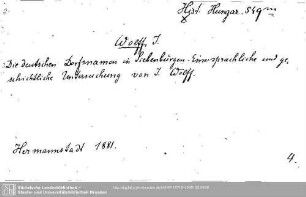 2.
Hist. Hungar. 549 m
Wolff, I.
Die deutschen Dorfsnamen in Siebenbürgen. Eine sprachliche und ge-
schichtliche Untersuchung von I. Wolff.
Hermannstadt 1881.
4.
Sächsische Landesbibliothek -
Staats- und Universitätsbibliothek Dresden